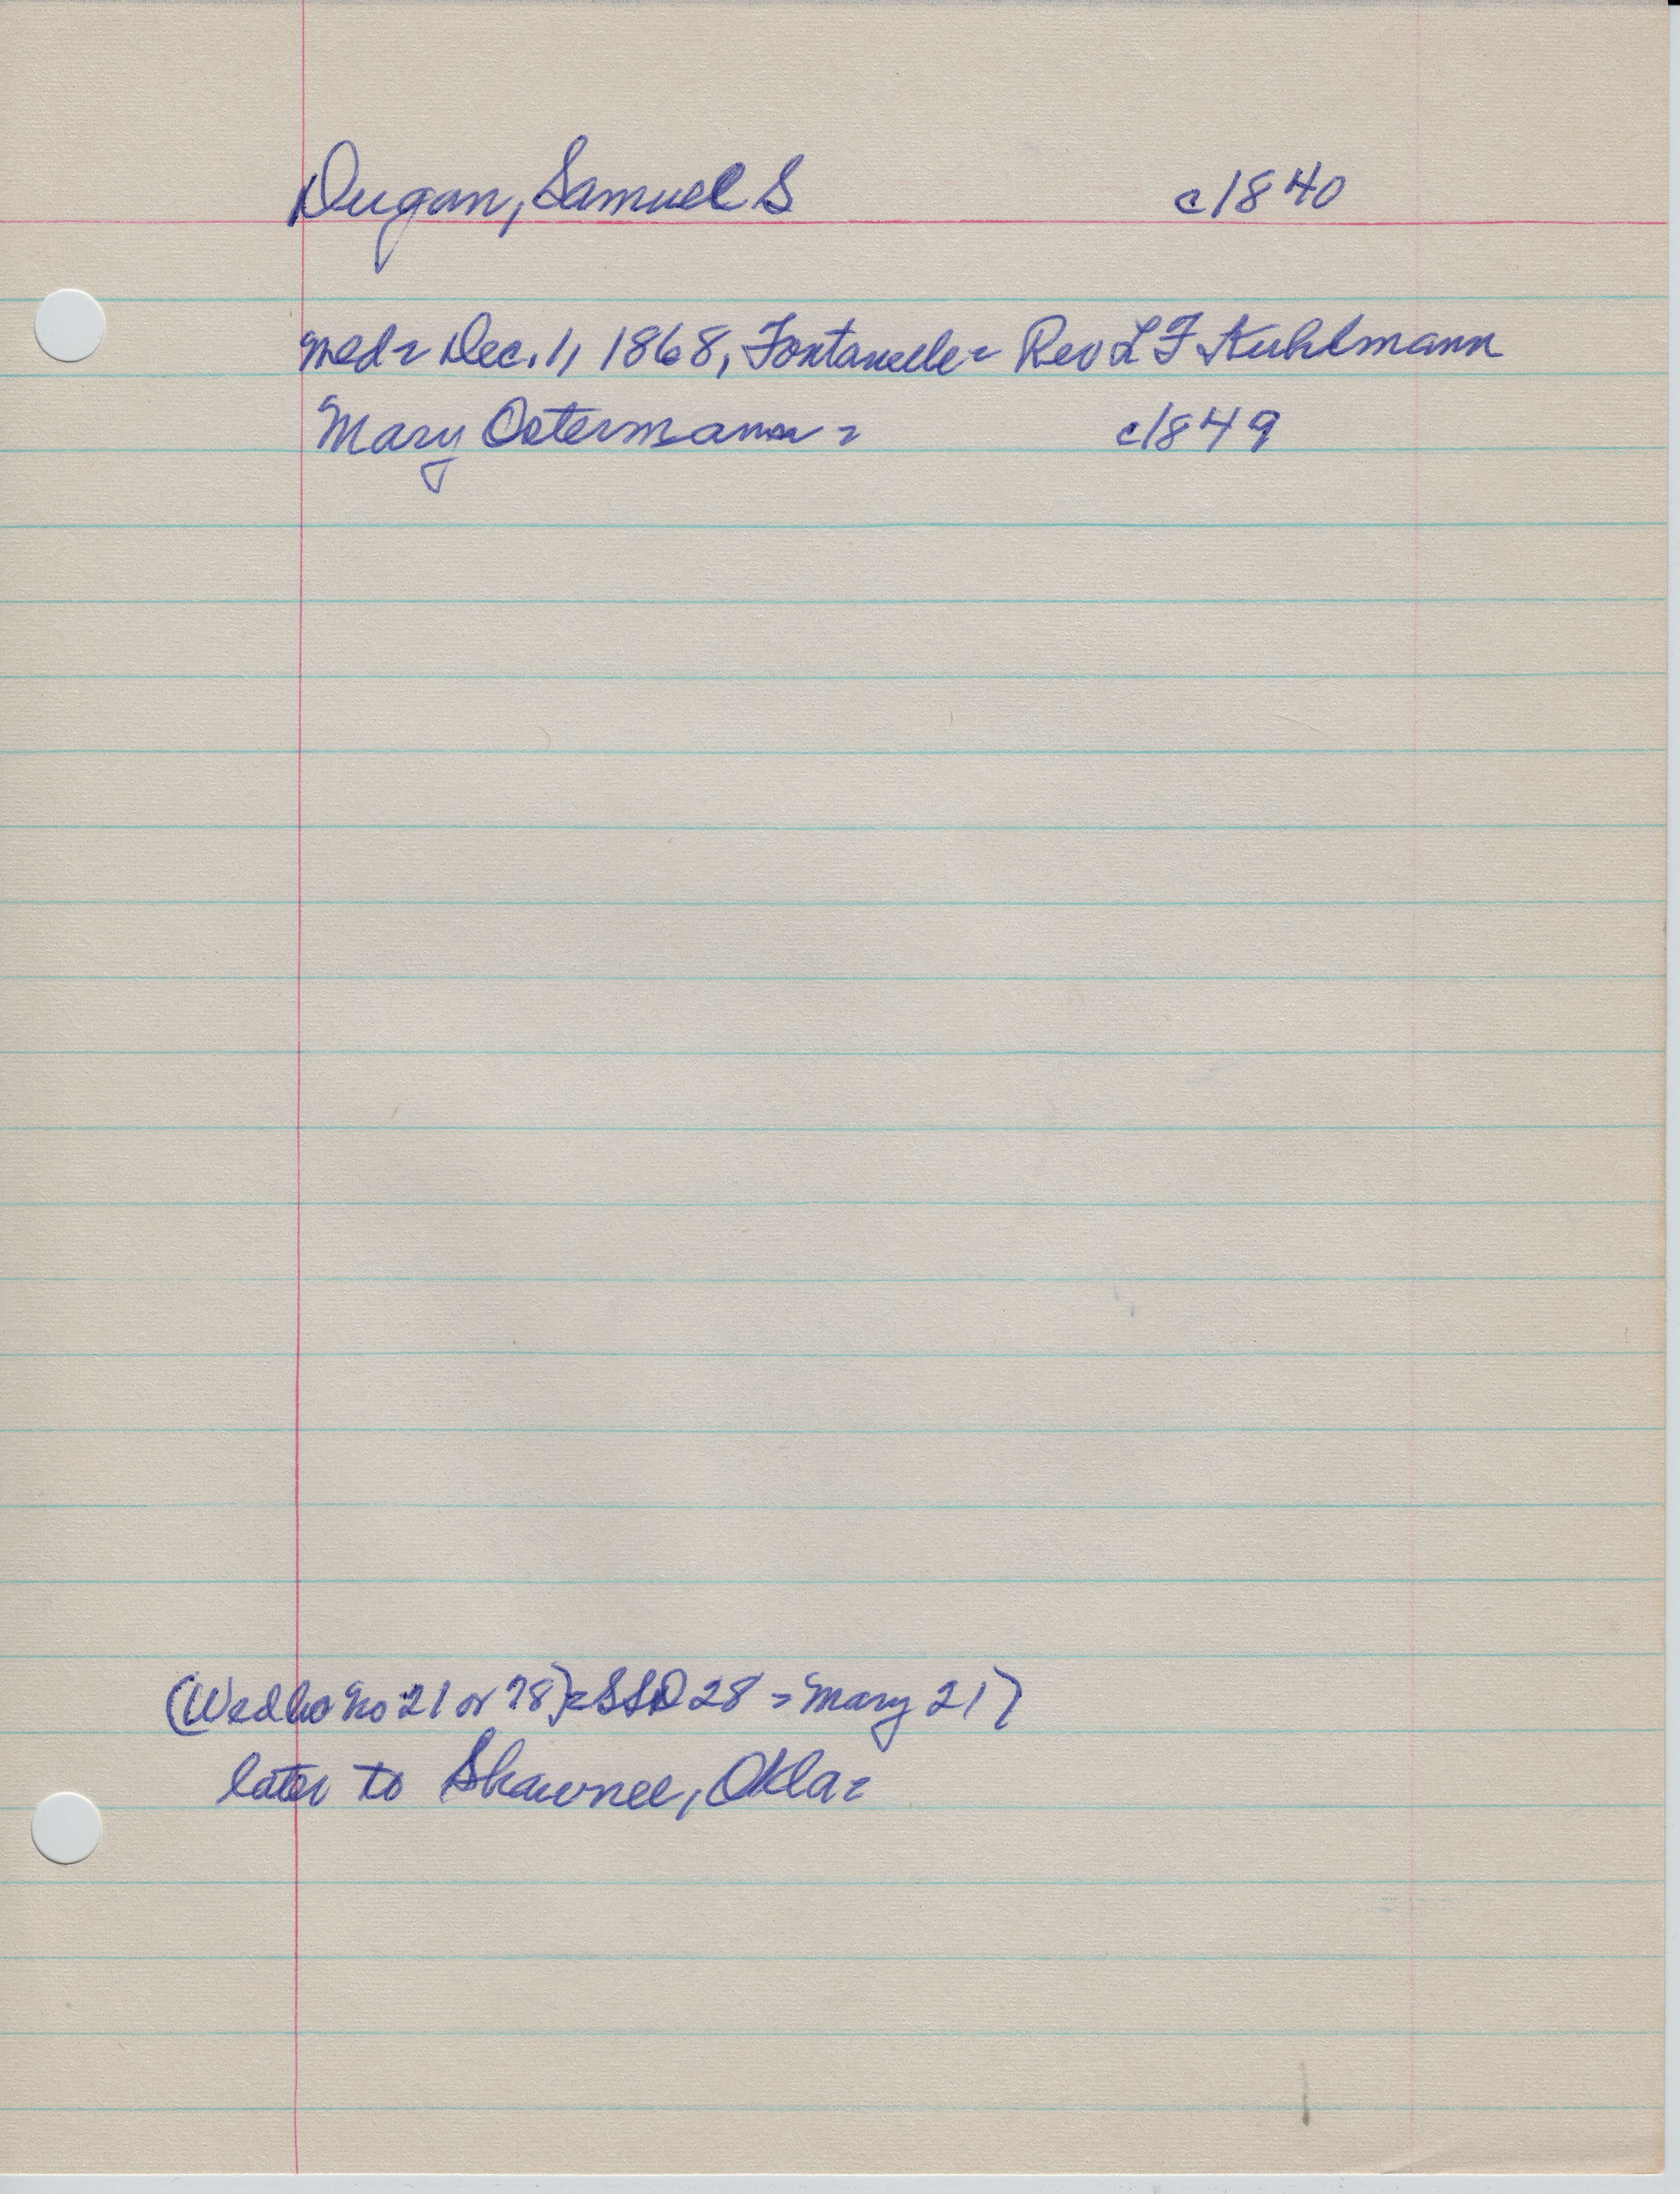 Dugan, Samuel S c1840
med = Dec. 1, 1868, Fontanelle = Rev L F Kuhlmann
Mary Ostermann = c1849
(Wedho No 21 or 28) = SSD 28 = Mary 21)
later to Shawnee, Okla =